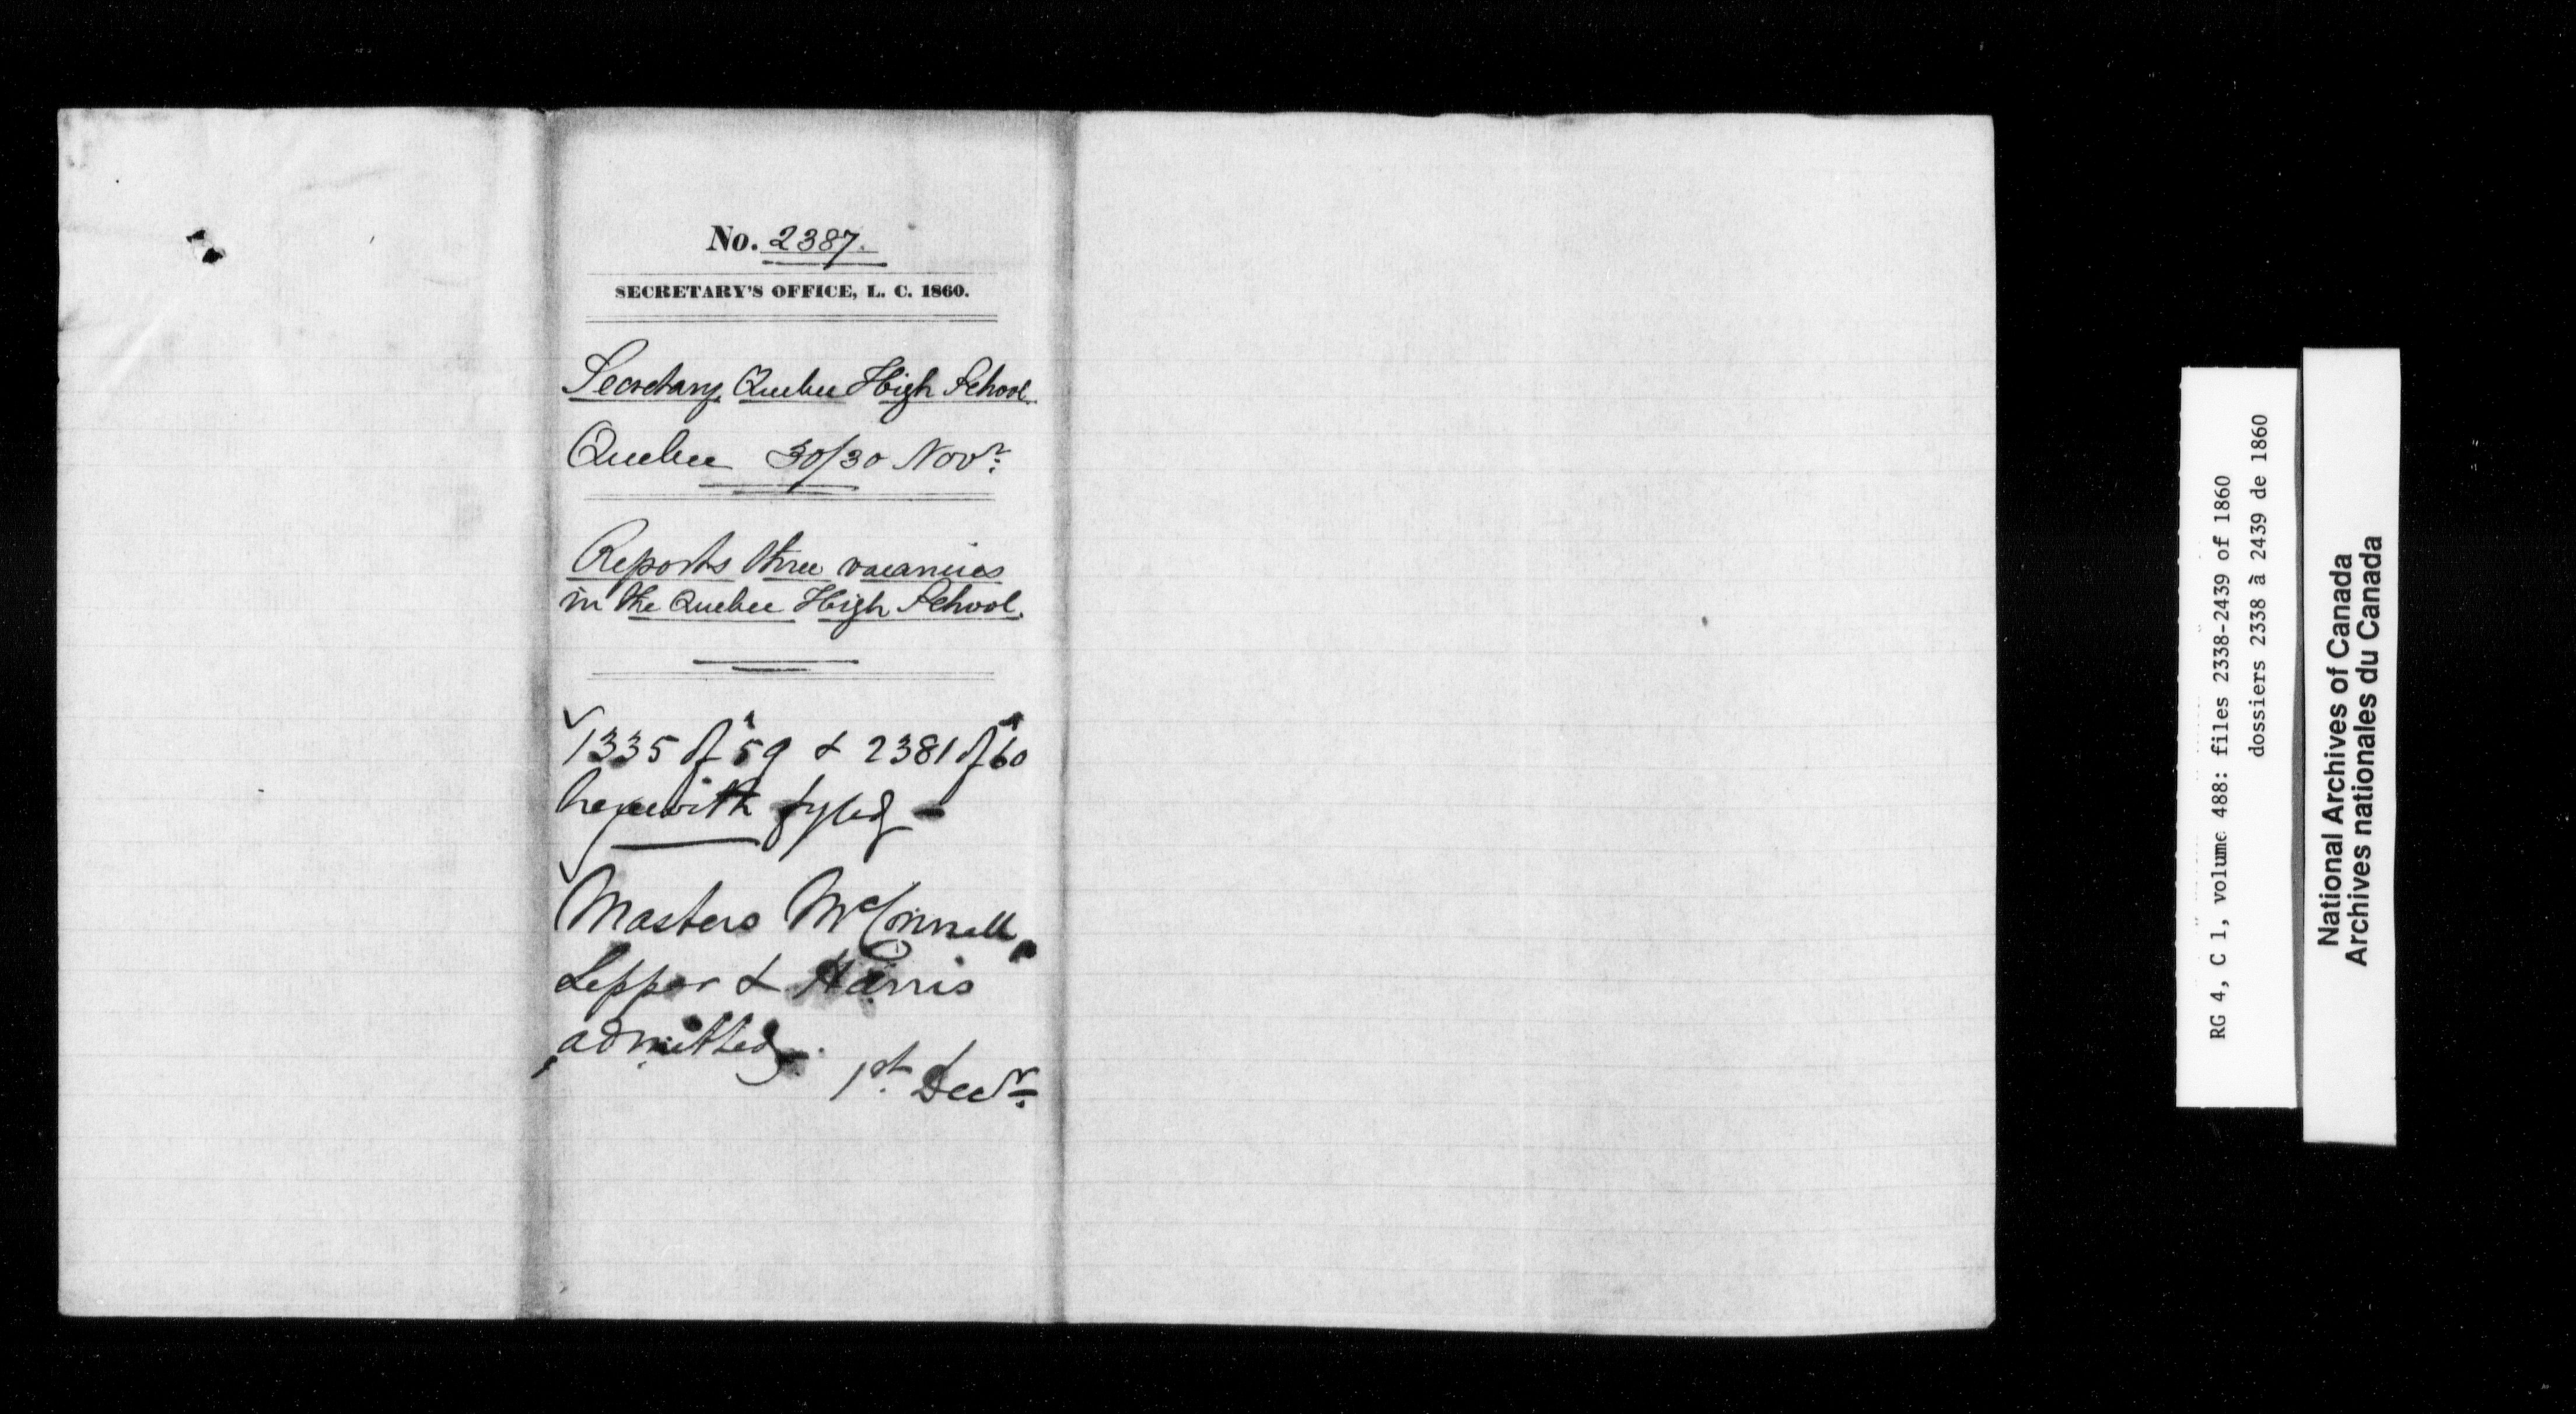 No. 2387.
SECRETARY'S OFFICE, L. C. 1860.
Secretary, Quebec High School.
Quebec 30/30 Novr.
Reports three vacancies
in the Quebec High School.
1335 of '59 & 2381 of '60
herewith fyled
Masters McConnell,
Leppar & Harris
admitted.
1st Decr.
RG 4, C 1, volume 488: files 2338-2439 of 1860
dossiers 2338 à 2439 de 1860
National Archives of Canada
Archives nationales du Canada